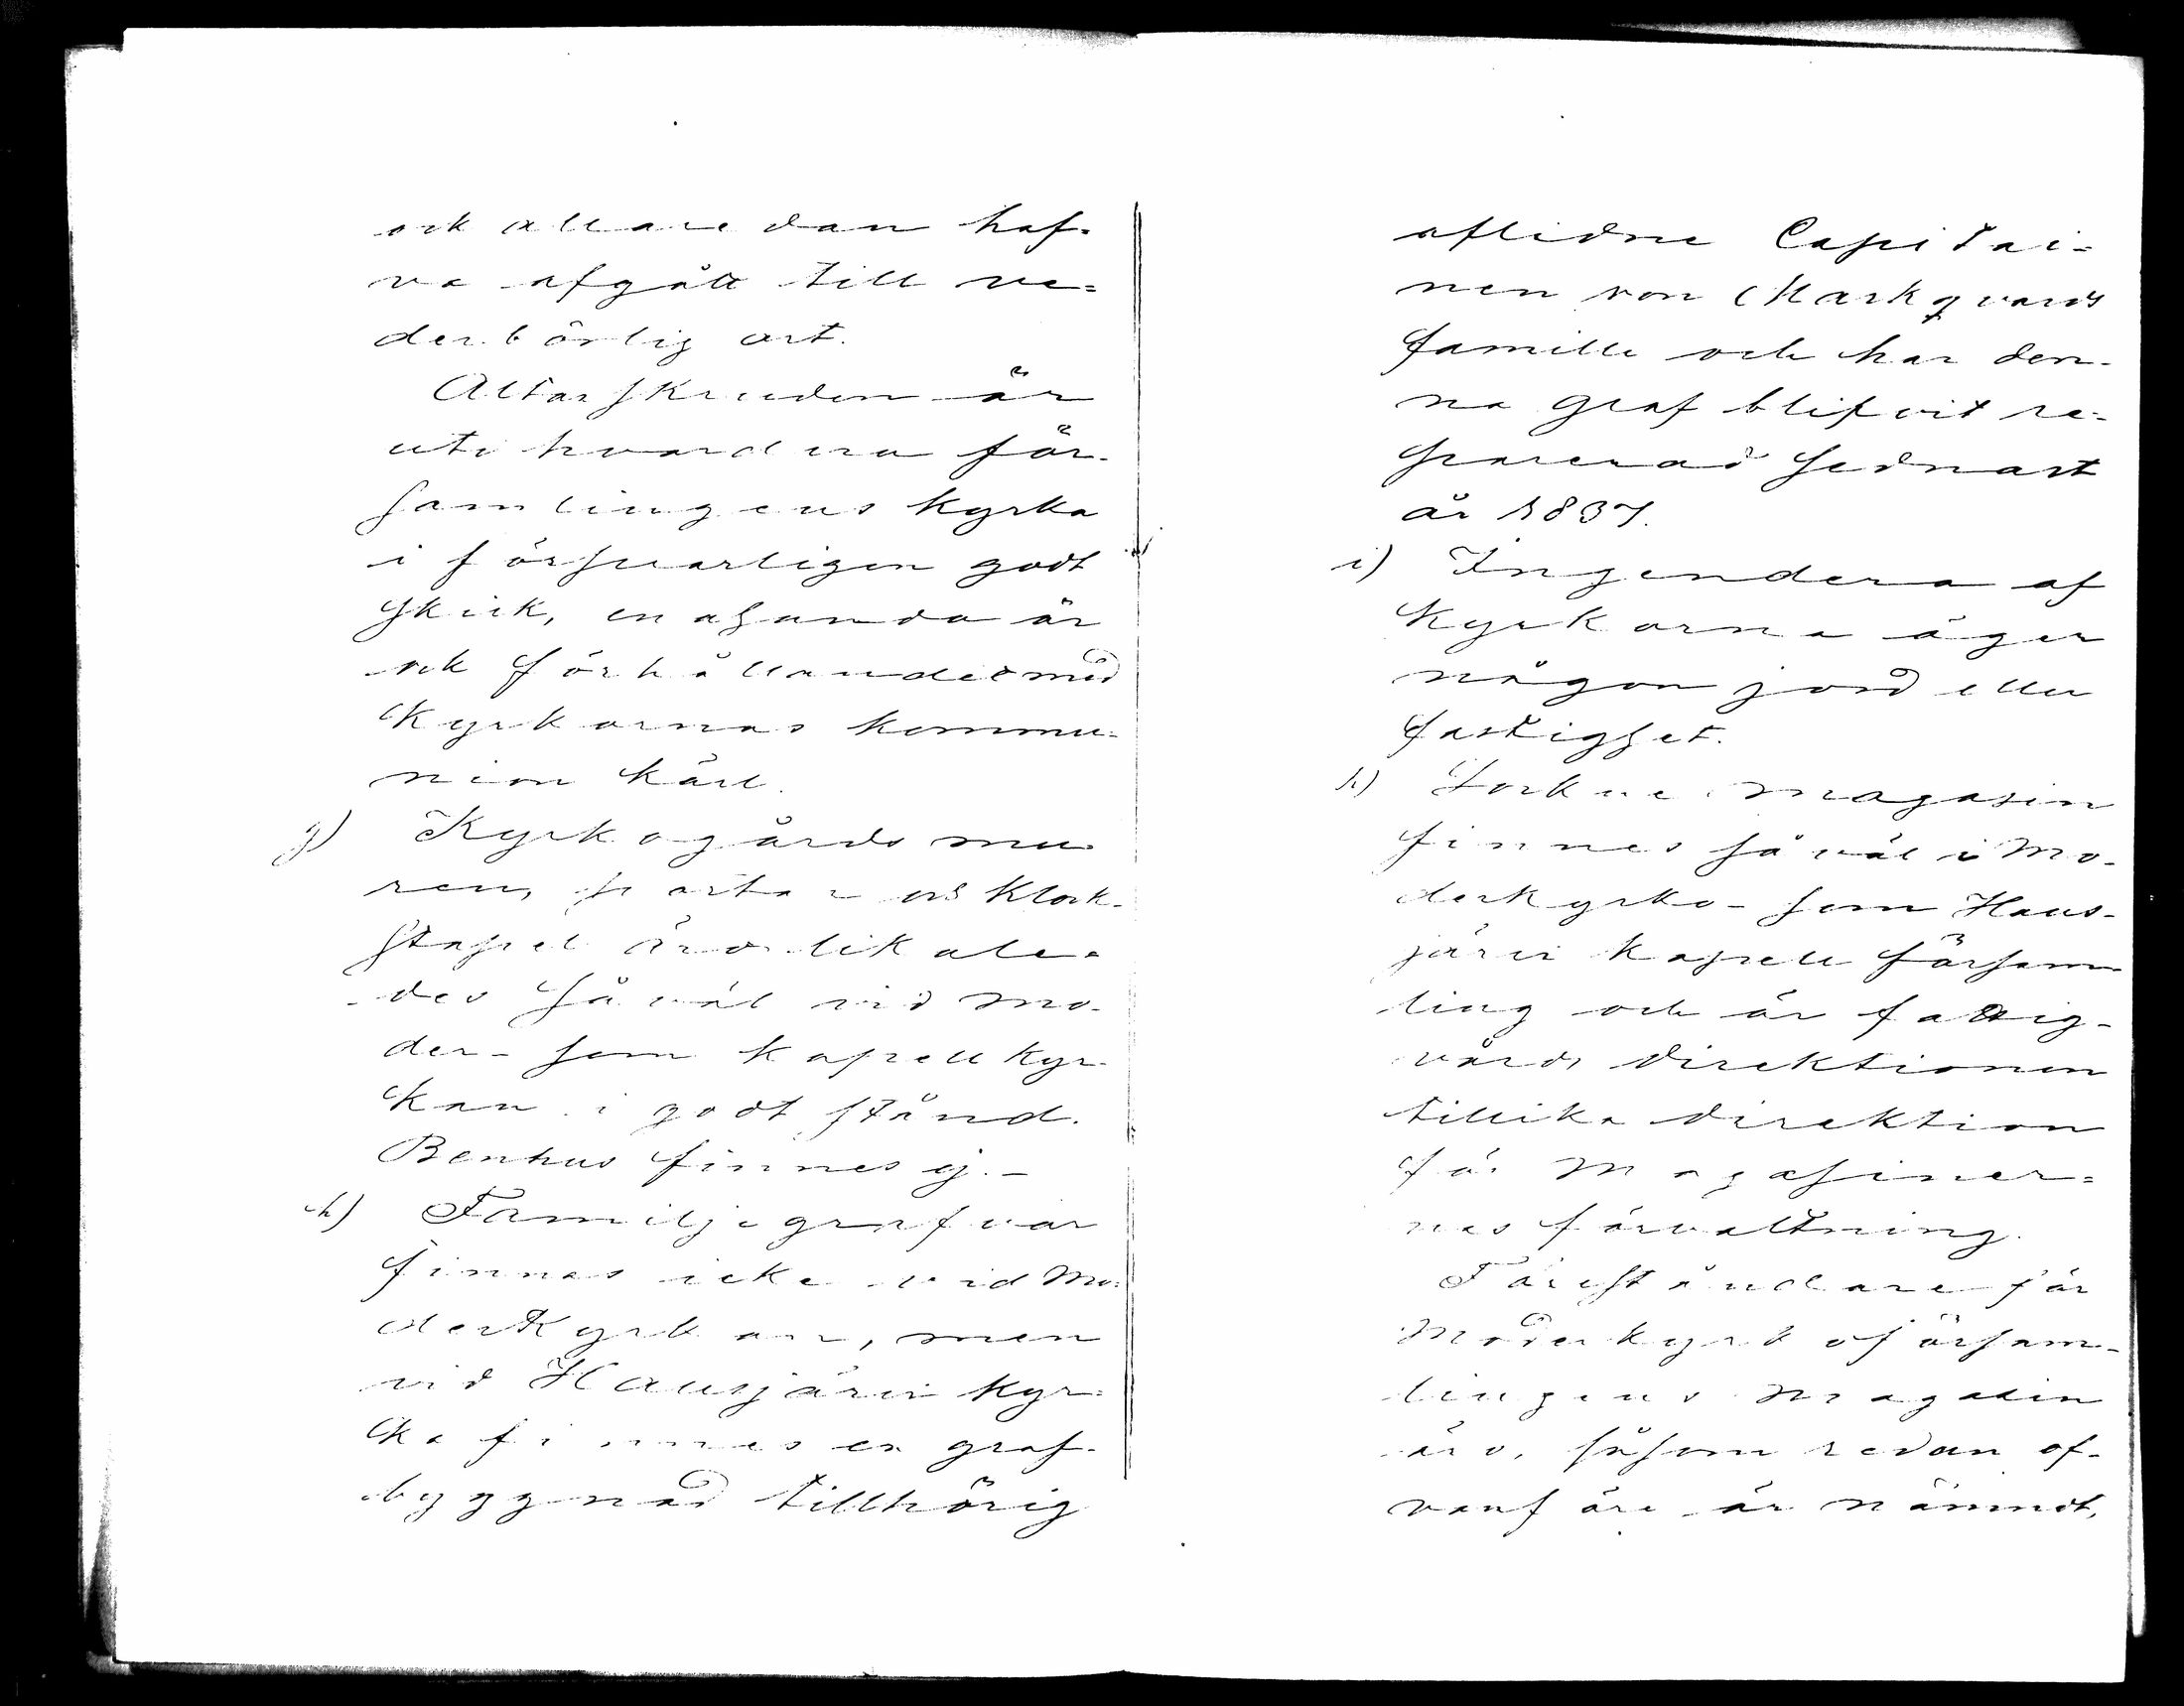 ock allaredan haf-
va afgått till ve=
derbörlig ort.
Altarskruden är
uti hvardera för-
samlingens kyrka
i försvarligen godt
skick, enahanda är
ock förhållandet med
Kyrkornas kommu=
nion kärl.
g) Kyrkogårds mu-
ren, portar och klock-
stapel äro likale-
des så väl vid Mo-
der- som kapell kyr-
kan i godt stånd.
Benhus finnes ej.-
h) Familjegrafvar
finnas icke vid Mo-
derkyrkan, men
vid Hausjärvi kyr-
ka finnes en graf-
byggnad tillhörig
aflidne Capitai=
nen von Markqvards
famille och har den-
na graf blifvit re-
parerad sednast
år 1837.
i) Ingendera af
Kyrkorna äger
någon jord eller
fastighet.
k) Sockne Magasin
finnes så väl i Mo-
derkyrko- som Haus-
järvi kapell försam-
ling och är fattig-
vårds direktionen
tillika direktion
för Magasiner=
nes förvaltning.
Föreståndare för
Moderkyrkoförsam-
lingens Magasin
äro, såsom redan of-
vanföre är nämndt,